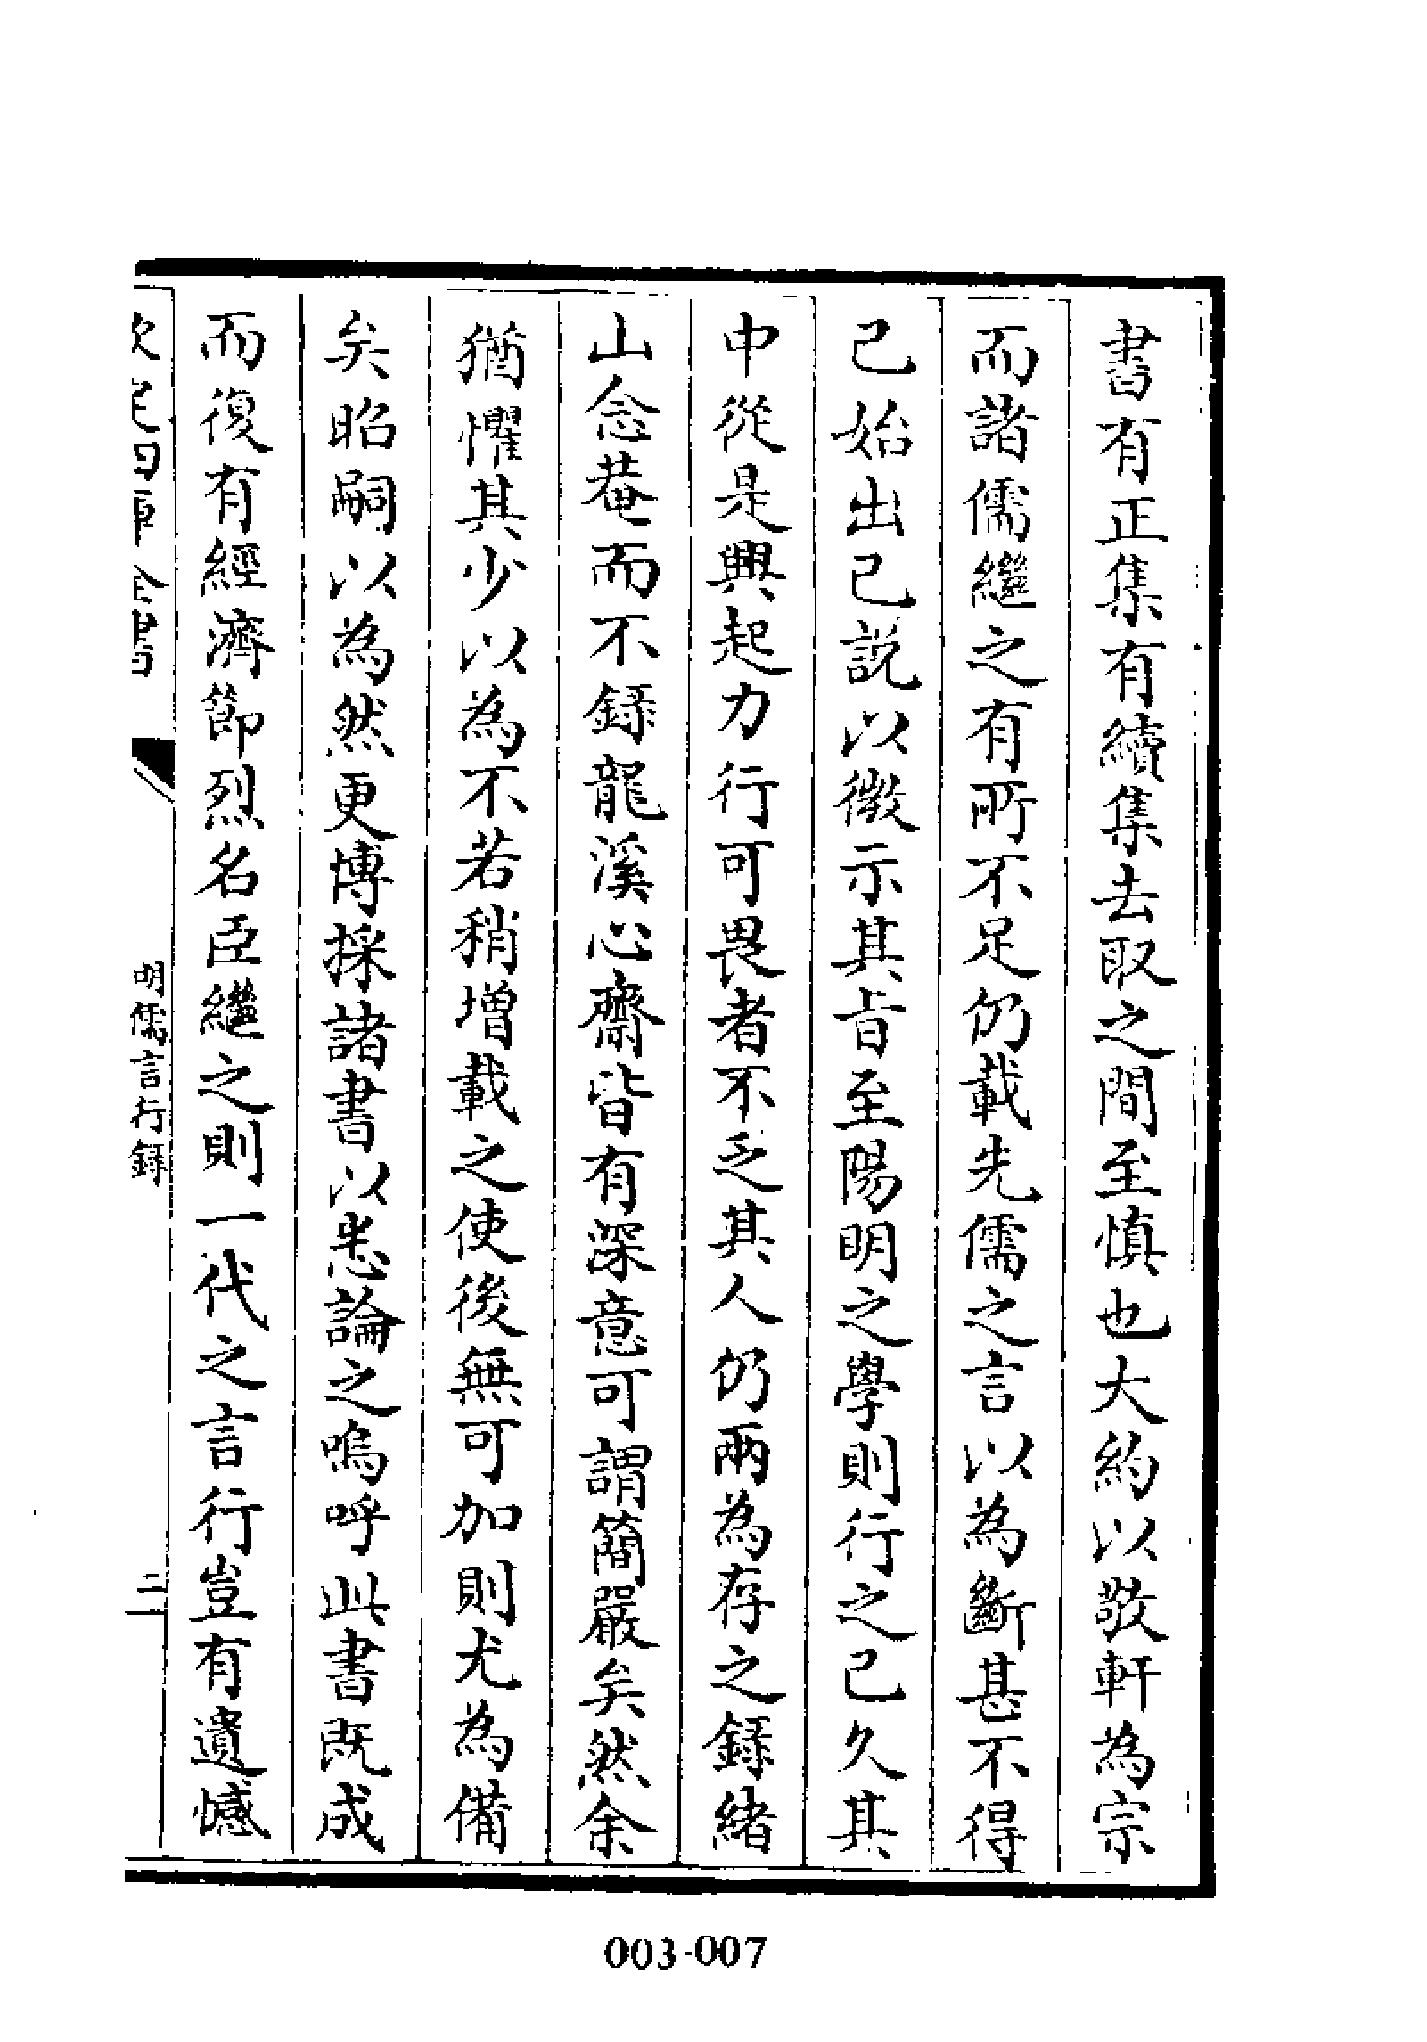 書有正集有續集去取之間至慎也大約以敬軒為宗
而諸儒繼之有所不足仍載先儒之言以為斷甚不得
已始出已説以微示其㫖至陽明之學則行之已久其
中從是興起力行可畏者不乏其人仍兩為存之錄緒
山念菴而不錄龍溪心齋皆有深意可謂簡嚴矣然余
猶懼其少以為不若稍增載之使後無可加則尤為備
矣昭嗣以為然更博採諸書以悉論之嗚呼此書既成
而復有經濟節烈名臣繼之則一代之言行豈有遺憾
欽定四庫全書
明儒言行錄
二
003-007